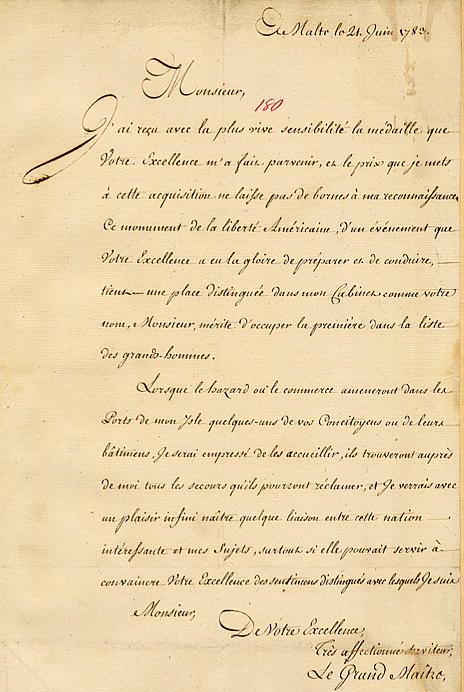 De Malte le 21. Juin 1783.
Monsieur,
180
J'ai reçu avec la plus vive sensibilité la médaille que
Votre Excellence m'a fait parvenir, et le prix que je mets
à cette acquisition ne laisse pas de bornes à ma reconnaissance.
Ce monument de la liberté Américaine, d'un événement que
Votre Excellence a eu la gloire de préparer et de conduire,
tient une place distinguée dans mon Cabinet comme votre
nom, Monsieur, mérite d'occuper la première dans la liste
des grands-hommes.
Lorsque le hazard ou le commerce ameneront dans les
Ports de mon Isle quelques-uns de vos Concitoyens ou de leurs
bâtimens, Je serai empressé de les accueillir, ils trouveront auprès
de moi tous les secours qu'ils pourront réclamer, et Je verrais avec
un plaisir infini naître quelque liaison entre cette nation
intéressante et mes Sujets, surtout si elle pouvait servir à
convaincre Votre Excellence des sentimens distingués avec lesquels Je suis
Monsieur,
De Votre Excellence,
Très affectionné serviteur,
Le Grand Maître,